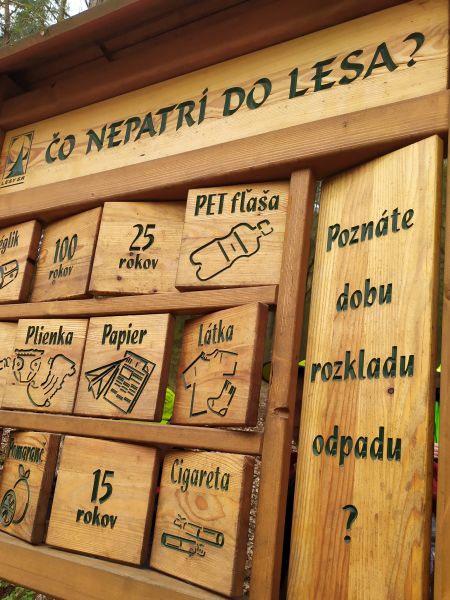 ČO NEPATRÍ DO LESA?
LESY SR
100
rokov
25
rokov
PET fľaša
Plienka
Papier
Látka
15
rokov
Cigareta
Poznáte
dobu
rozkladu
odpadu
?